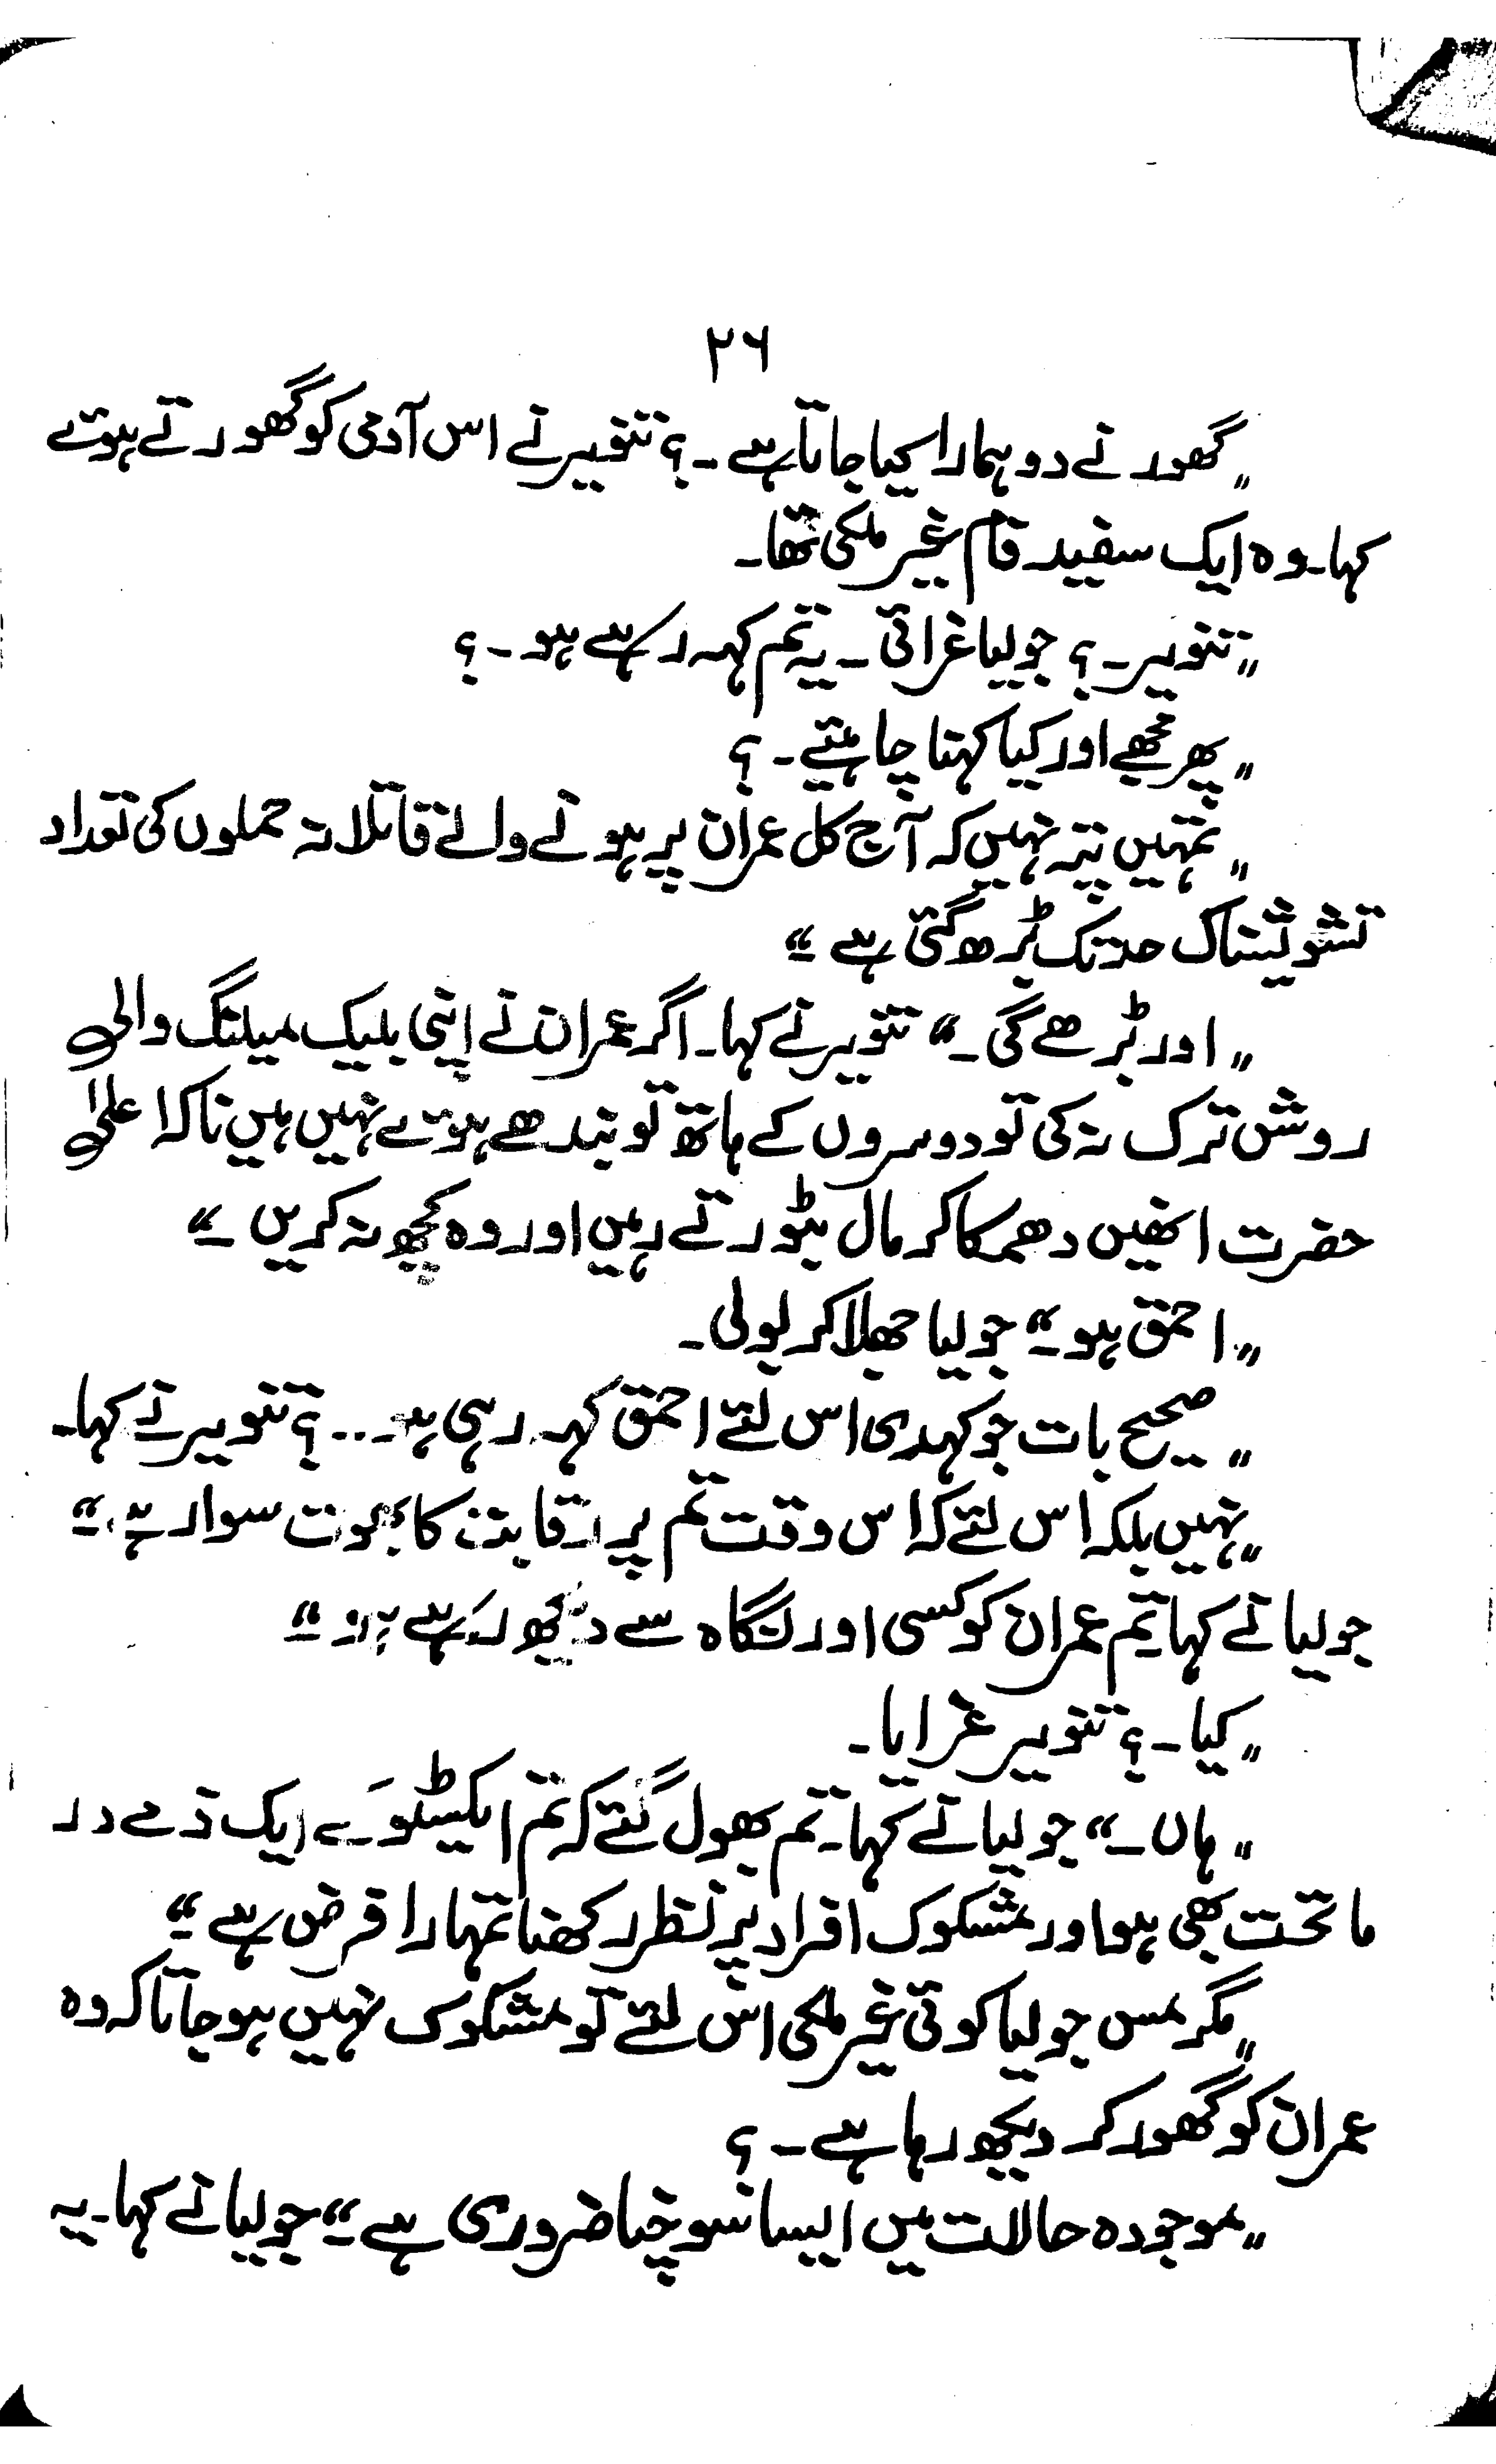 ۲۶
"گھورنے دو ہمارا کیا جاتا ہے ۔؟ تنویر نے اس آدمی کو گھورتے ہوئے
کہا۔ وہ ایک سفید فام غیر ملکی تھا۔
"تنویر۔؟ جولیا غرائی ۔ یہ تم کہہ رہے ہو ۔؟
"پھر مجھے اور کیا کہنا چاہیئے ۔؟
"تمہیں پتہ نہیں کہ آج کل عمران پر ہونے والے قاتلانہ حملوں کی تعداد
تشویشناک حد تک بڑھ گئی ہے ۔"
"اور بڑھے گی ۔" تنویر نے کہا۔ اگر عمران نے اپنی بلیک میلنگ والی
روش ترک نہ کی تو دوسروں کے ہاتھ تو بندھے ہوئے نہیں ہیں نا کہ اعلیٰ
حضرت انھیں دھمکا کر مال بٹورتے رہیں اور وہ کچھ نہ کریں ۔"
"احمق ہو ۔" جولیا جھلا کر بولی۔
"صحیح بات جو کہدی اس لئے احمق کہہ رہی ہو ۔..؟ تنویر نے کہا۔
"نہیں بلکہ اس لئے کہ اس وقت تم پر رقابت کا بھوت سوار ہے ۔"
جولیا نے کہا تم عمران کو کسی اور نگاہ سے دیکھ رہے ہو ۔"
"کیا ۔؟ تنویر غرایا۔
"ہاں ۔" جولیا نے کہا۔ تم بھول گئے کہ تم ایکسٹو کے ایک ذمے دار
ماتحت بھی ہو اور مشکوک افراد پر نظر رکھنا تمہارا فرض ہے ۔"
"مگر مس جولیا کوئی غیر ملکی اس لئے تو مشکوک نہیں ہو جاتا کہ وہ
عمران کو گھور کر دیکھ رہا ہے ۔؟
"موجودہ حالات میں ایسا سوچنا ضروری ہے ۔" جولیا نے کہا۔ یہ